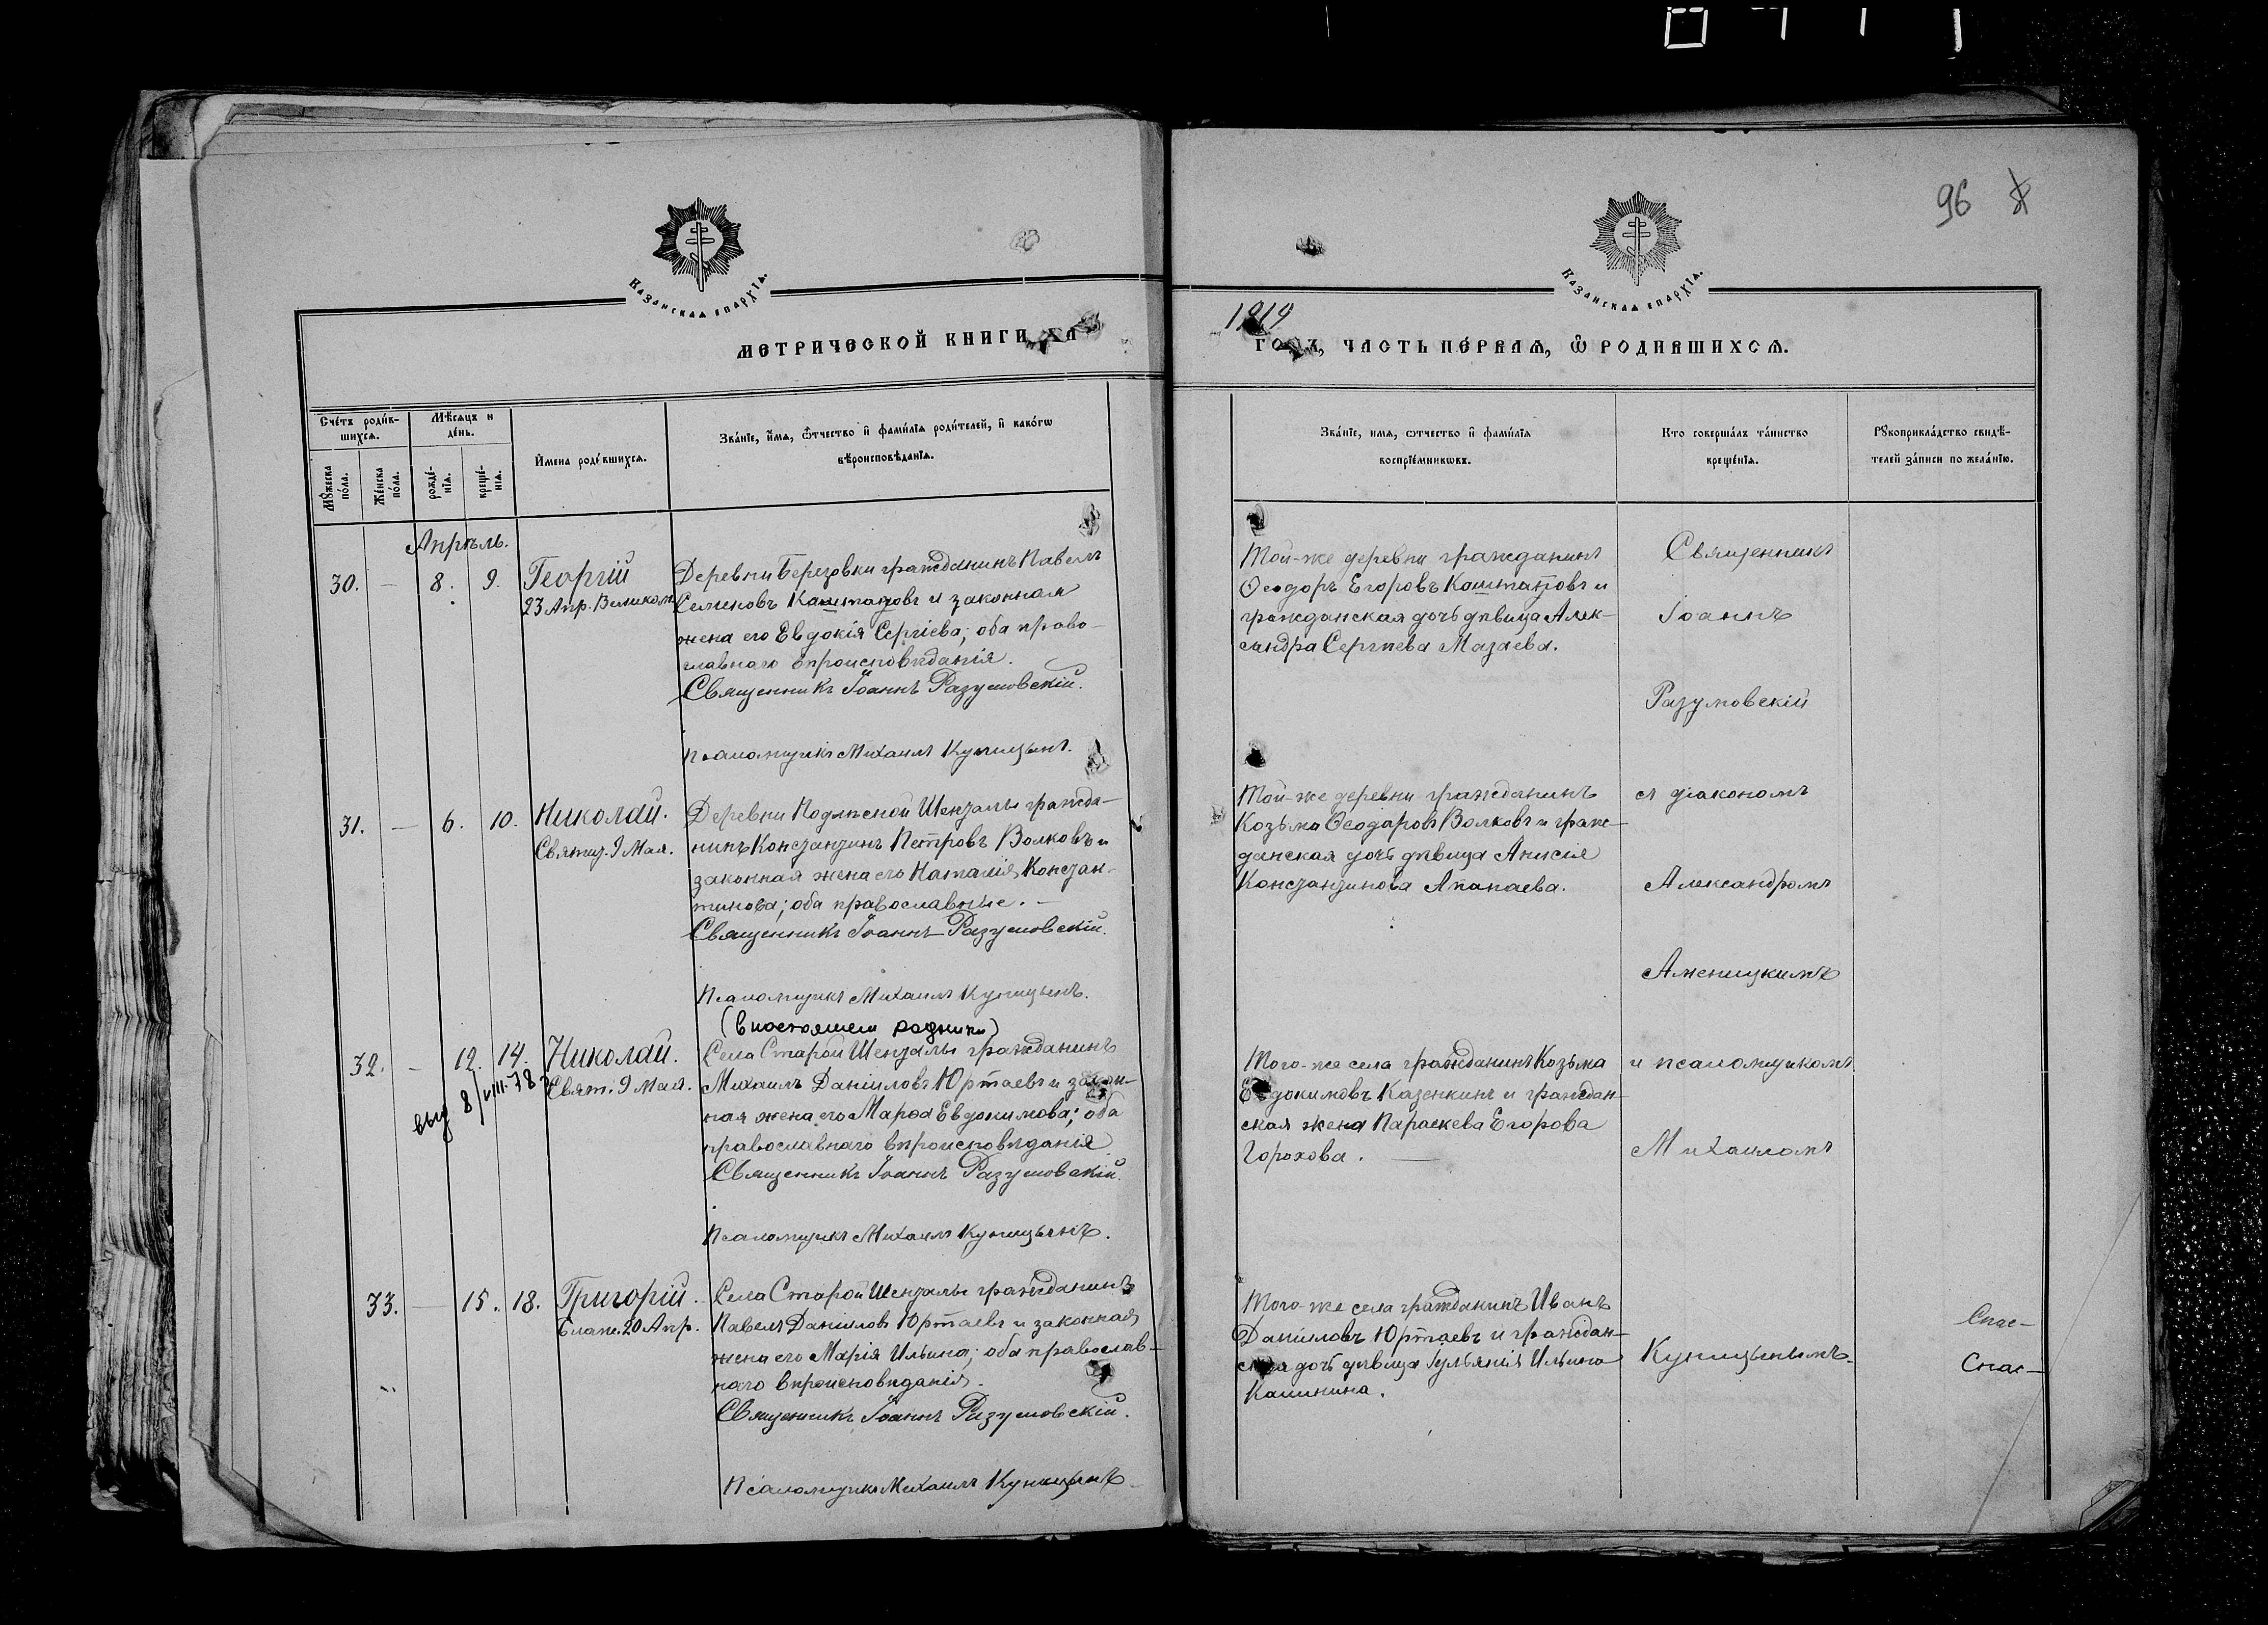 96 8
Казанская епархїа.
Казанская епархїа.
МЕТРИЧЕСКОЙ КНИГИ НА
1919
ГОДЪ, ЧАСТЬ ПЕ́РВАЯ, Ѿ РОДИВШИХСЯ.
Сче́тъ роди́в-
шихся.
Мѣ́сяцъ и
де́нь.
Мꙋ́жеска
по́ла.
Же́нска
по́ла.
рожде́-
нїя.
креще́-
нїя.
И҆мена роди́вшихся.
Зва́нїе, и҆́мя, ѻ҆́тчество и҆ фами́лїя роди́телей, и҆ како́гѡ
вѣроисповѣ́данїя.
Зва́нїе, имя, ѻтчество и҆ фами́лїя
воспрїе́мникѡвъ.
Кто соверша́лъ та́инство
креще́нїя.
Рꙋкоприкла́дство свидѣ́-
телей за́писи по жела́нїю.
Апрѣль.
30. — 8. 9. Георгій
23 Апр. Великом.
Деревни Березовки гражданинъ Павелъ
Семеновъ Каштановъ и законная
жена его Евдокія Сергіева; оба право-
славнаго вѣроисповѣданія.
Священникъ Іоаннъ Разумовскій.
Псаломщикъ Михаилъ Куницынъ.
Той-же деревни гражданинъ
Ѳеодоръ Егоровъ Каштановъ и
гражданская дочь дѣвица Алек-
сандра Сергѣева Мазаева.
Священникъ
Іоаннъ
Разумовскій
31. — 6. 10. Николай.
Святит. 9 Мая.
Деревни Подлѣсной Шенталы гражда-
нинъ Константинъ Петровъ Волковъ и
законная жена его Наталія Констан-
тинова; оба православные. —
Священникъ Іоаннъ Разумовскій.
Псаломщикъ Михаилъ Куницынъ.
Той-же деревни гражданинъ
Козьма Ѳеодоровъ Волковъ и граж-
данская дочь дѣвица Анисія
Константинова Апанаева.
съ діакономъ
Александромъ
Аменицкимъ
(в настоящем родники)
32. — 12. 14. Николай.
Свят. 9 Мая.
выд 8/VIII-78
Села Старой Шенталы гражданинъ
Михаилъ Даниловъ Юртаевъ и закон-
ная жена его Марѳа Евдокимова; оба
православнаго вѣроисповѣданія
Священникъ Іоаннъ Разумовскій.
Псаломщикъ Михаилъ Куницынъ.
Того-же села гражданинъ Козьма
Евдокимовъ Казенкинъ и граждан-
ская жена Параскева Егорова
Горохова. —
и псаломщикомъ
Михаиломъ
33. — 15. 18. Григорій.
Блаже. 20 Апр.
Села Старой Шенталы гражданинъ
Павелъ Даниловъ Юртаевъ и законная
жена его Марія Ильина; оба православ-
наго вѣроисповѣданія.
Священникъ Іоаннъ Разумовскій.
Псаломщикъ Михаилъ Куницынъ
Того-же села гражданинъ Иванъ
Даниловъ Юртаевъ и граждан-
ская дочь дѣвица Іульянія Ильина
Калинина.
Куницынымъ.
Спас-
Спас-